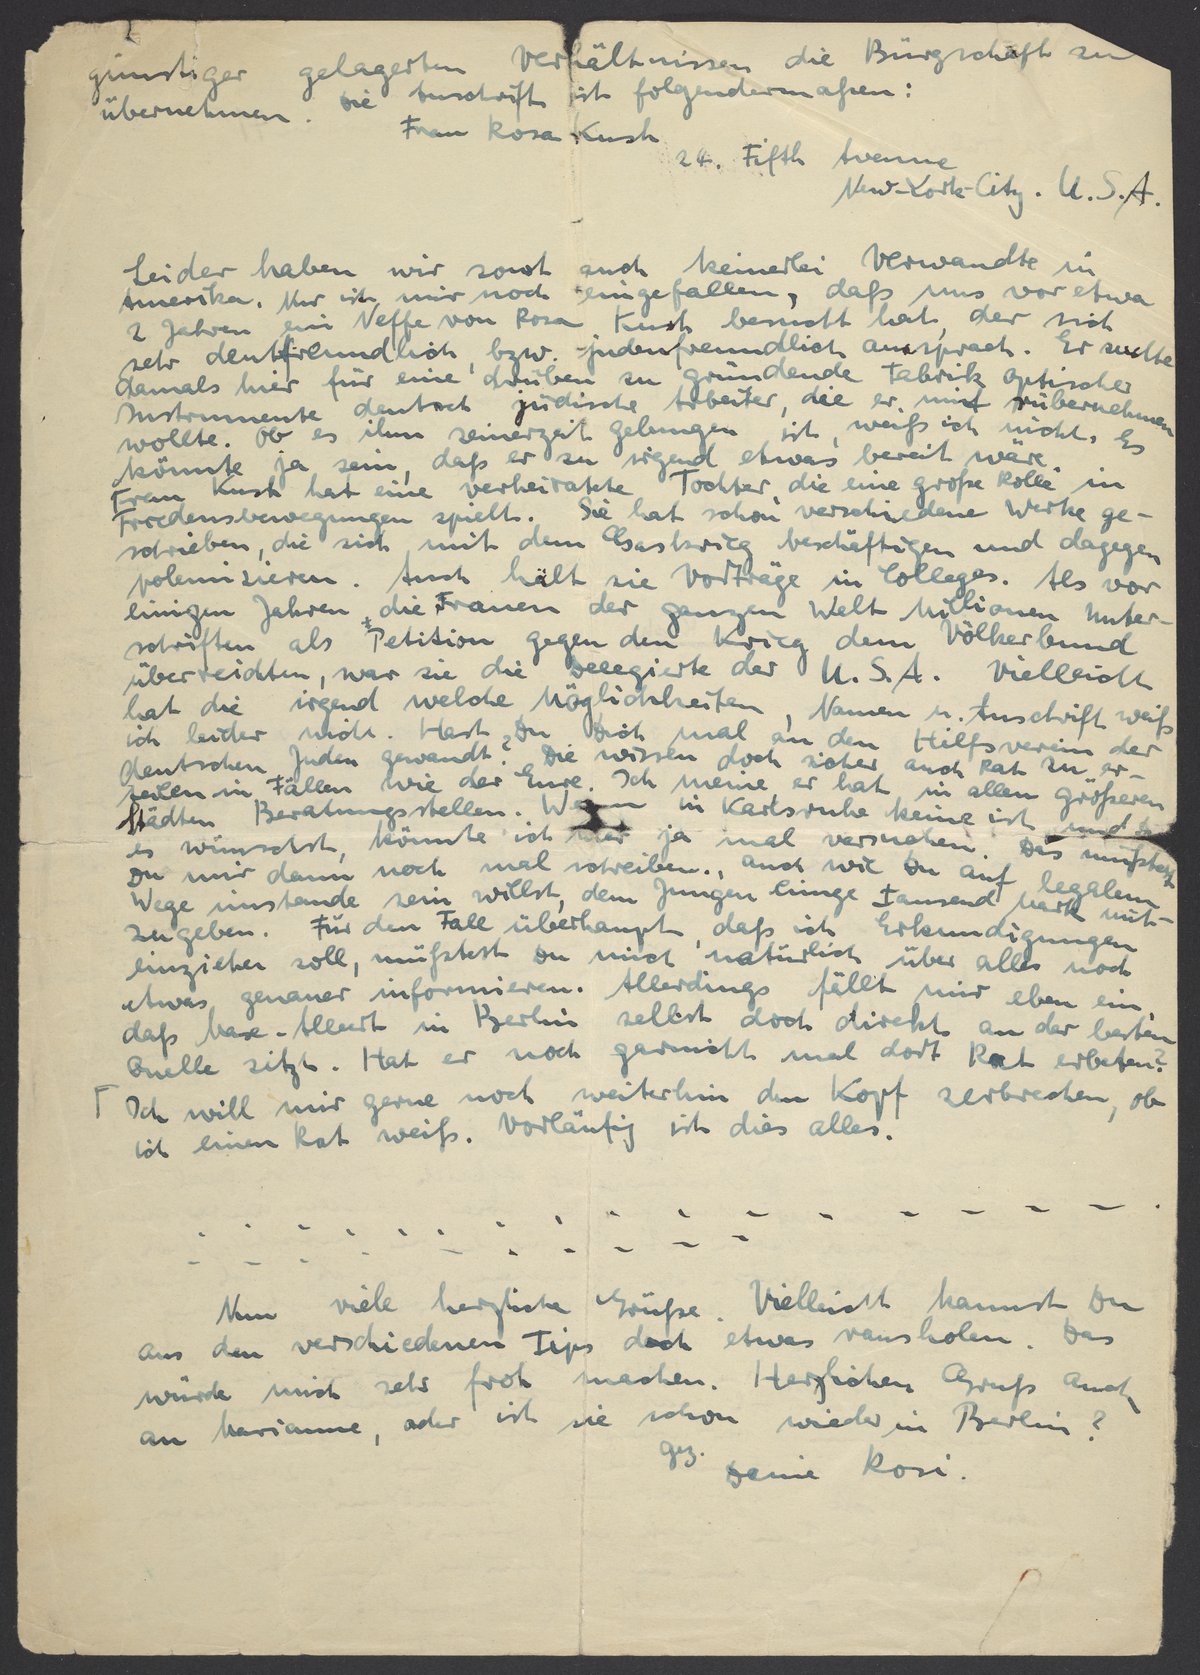 günstiger gelagerten Verhältnissen die Bürgschaft zu
übernehmen. Die Anschrift ist folgendermaßen:
Frau Rosa Kush
24. Fifth Avenue
New-York-City. U.S.A.
Leider haben wir sonst auch keinerlei Verwandte in
Amerika. Nur ist mir noch eingefallen, daß uns vor etwa
2 Jahren ein Neffe von Rosa Kush besucht hat, der sich
sehr deutschfreundlich, bzw. judenfreundlich aussprach. Er suchte
damals hier für eine drüben zu gründende Fabrik optischer
Instrumente deutsch jüdische Arbeiter, die er mit rübernehmen
wollte. Ob es ihm seinerzeit gelungen ist, weiß ich nicht. Es
könnte ja sein, daß er zu irgend etwas bereit wäre.
Frau Kush hat eine verheiratete Tochter, die eine große Rolle in
Friedensbewegungen spielt. Sie hat schon verschiedene Werke ge-
schrieben, die sich mit dem Gaskrieg beschäftigen und dagegen
polemisieren. Auch hält sie Vorträge in Colleges. Als vor
einigen Jahren die Frauen der ganzen Welt Millionen Unter-
schriften als Petition gegen den Krieg dem Völkerbund
überreichten, war sie die Delegierte der U.S.A. Vielleicht
hat die irgend welche Möglichkeiten, Namen u. Anschrift weiß
ich leider nicht. Hast Du Dich mal an den Hilfsverein der
deutschen Juden gewandt? Die wissen doch sicher auch Rat zu er-
teilen in Fällen wie der Eure. Ich meine er hat in allen größeren
Städten Beratungsstellen. Wenn in Karlsruhe keine ist und Du
es wünschst, könnte ich hier ja mal versuchen. Das müßtest
Du mir dann noch mal schreiben., auch wie Du auf legalem
Wege imstande sein willst, dem Jungen einige Tausend Mark mit-
zugeben. Für den Fall überhaupt, daß ich Erkundigungen
einziehen soll, müßtest Du mich natürlich über alles noch
etwas genauer informieren. Allerdings fällt mir eben ein,
daß Max-Albert in Berlin selbst doch direkt an der besten
Quelle sitzt. Hat er noch garnicht mal dort Rat erbeten?
Ich will mir gerne noch weiterhin den Kopf zerbrechen, ob
ich einen Rat weiß. Vorläufig ist dies alles.
Nun viele herzliche Grüße. Vielleicht kannst Du
aus den verschiedenen Tips doch etwas rausholen. Das
würde mich sehr froh machen. Herzlichen Gruß auch
an Marianne, oder ist sie schon wieder in Berlin?
gez.
Deine Rosi.